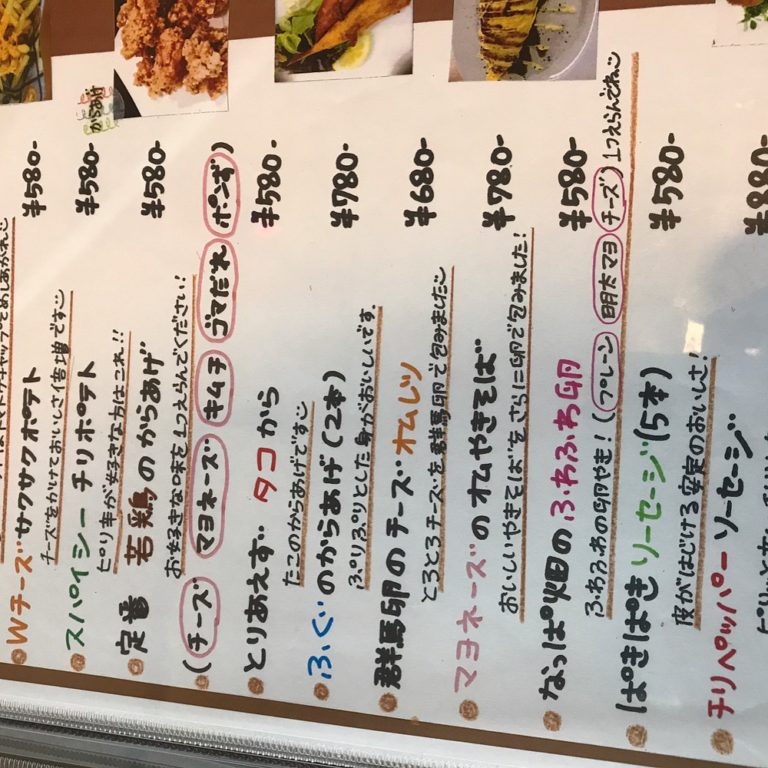 Wチーズサクサクポテト ¥580-
チーズをかけておいしさ倍増です
スパイシーチリポテト ¥580-
ピリ辛が好きな方はこれ!!
からあげ
定番 若鶏のからあげ ¥580-
お好きな味を1つえらんでください!
(チーズ マヨネーズ キムチ ゴマだれ ポンず)
とりあえず タコから ¥580-
たこのからあげです
ふぐのからあげ(2本) ¥780-
ぷりぷりとした身がおいしいです.
群馬卵のチーズオムレツ ¥680-
とろとろチーズを群馬卵で包みました
マヨネーズのオムやきそば ¥780-
おいしいやきそばをさらに卵で包みました!
なっぱ畑のふわふわ卵 ¥580-
ふわふわの卵やき!(プレーン 明太マヨ チーズ)1つえらんでね
ぱきぱきソーセージ(5本) ¥580-
皮がはじける安定のおいしさ!
チリペッパーソーセージ ¥880-